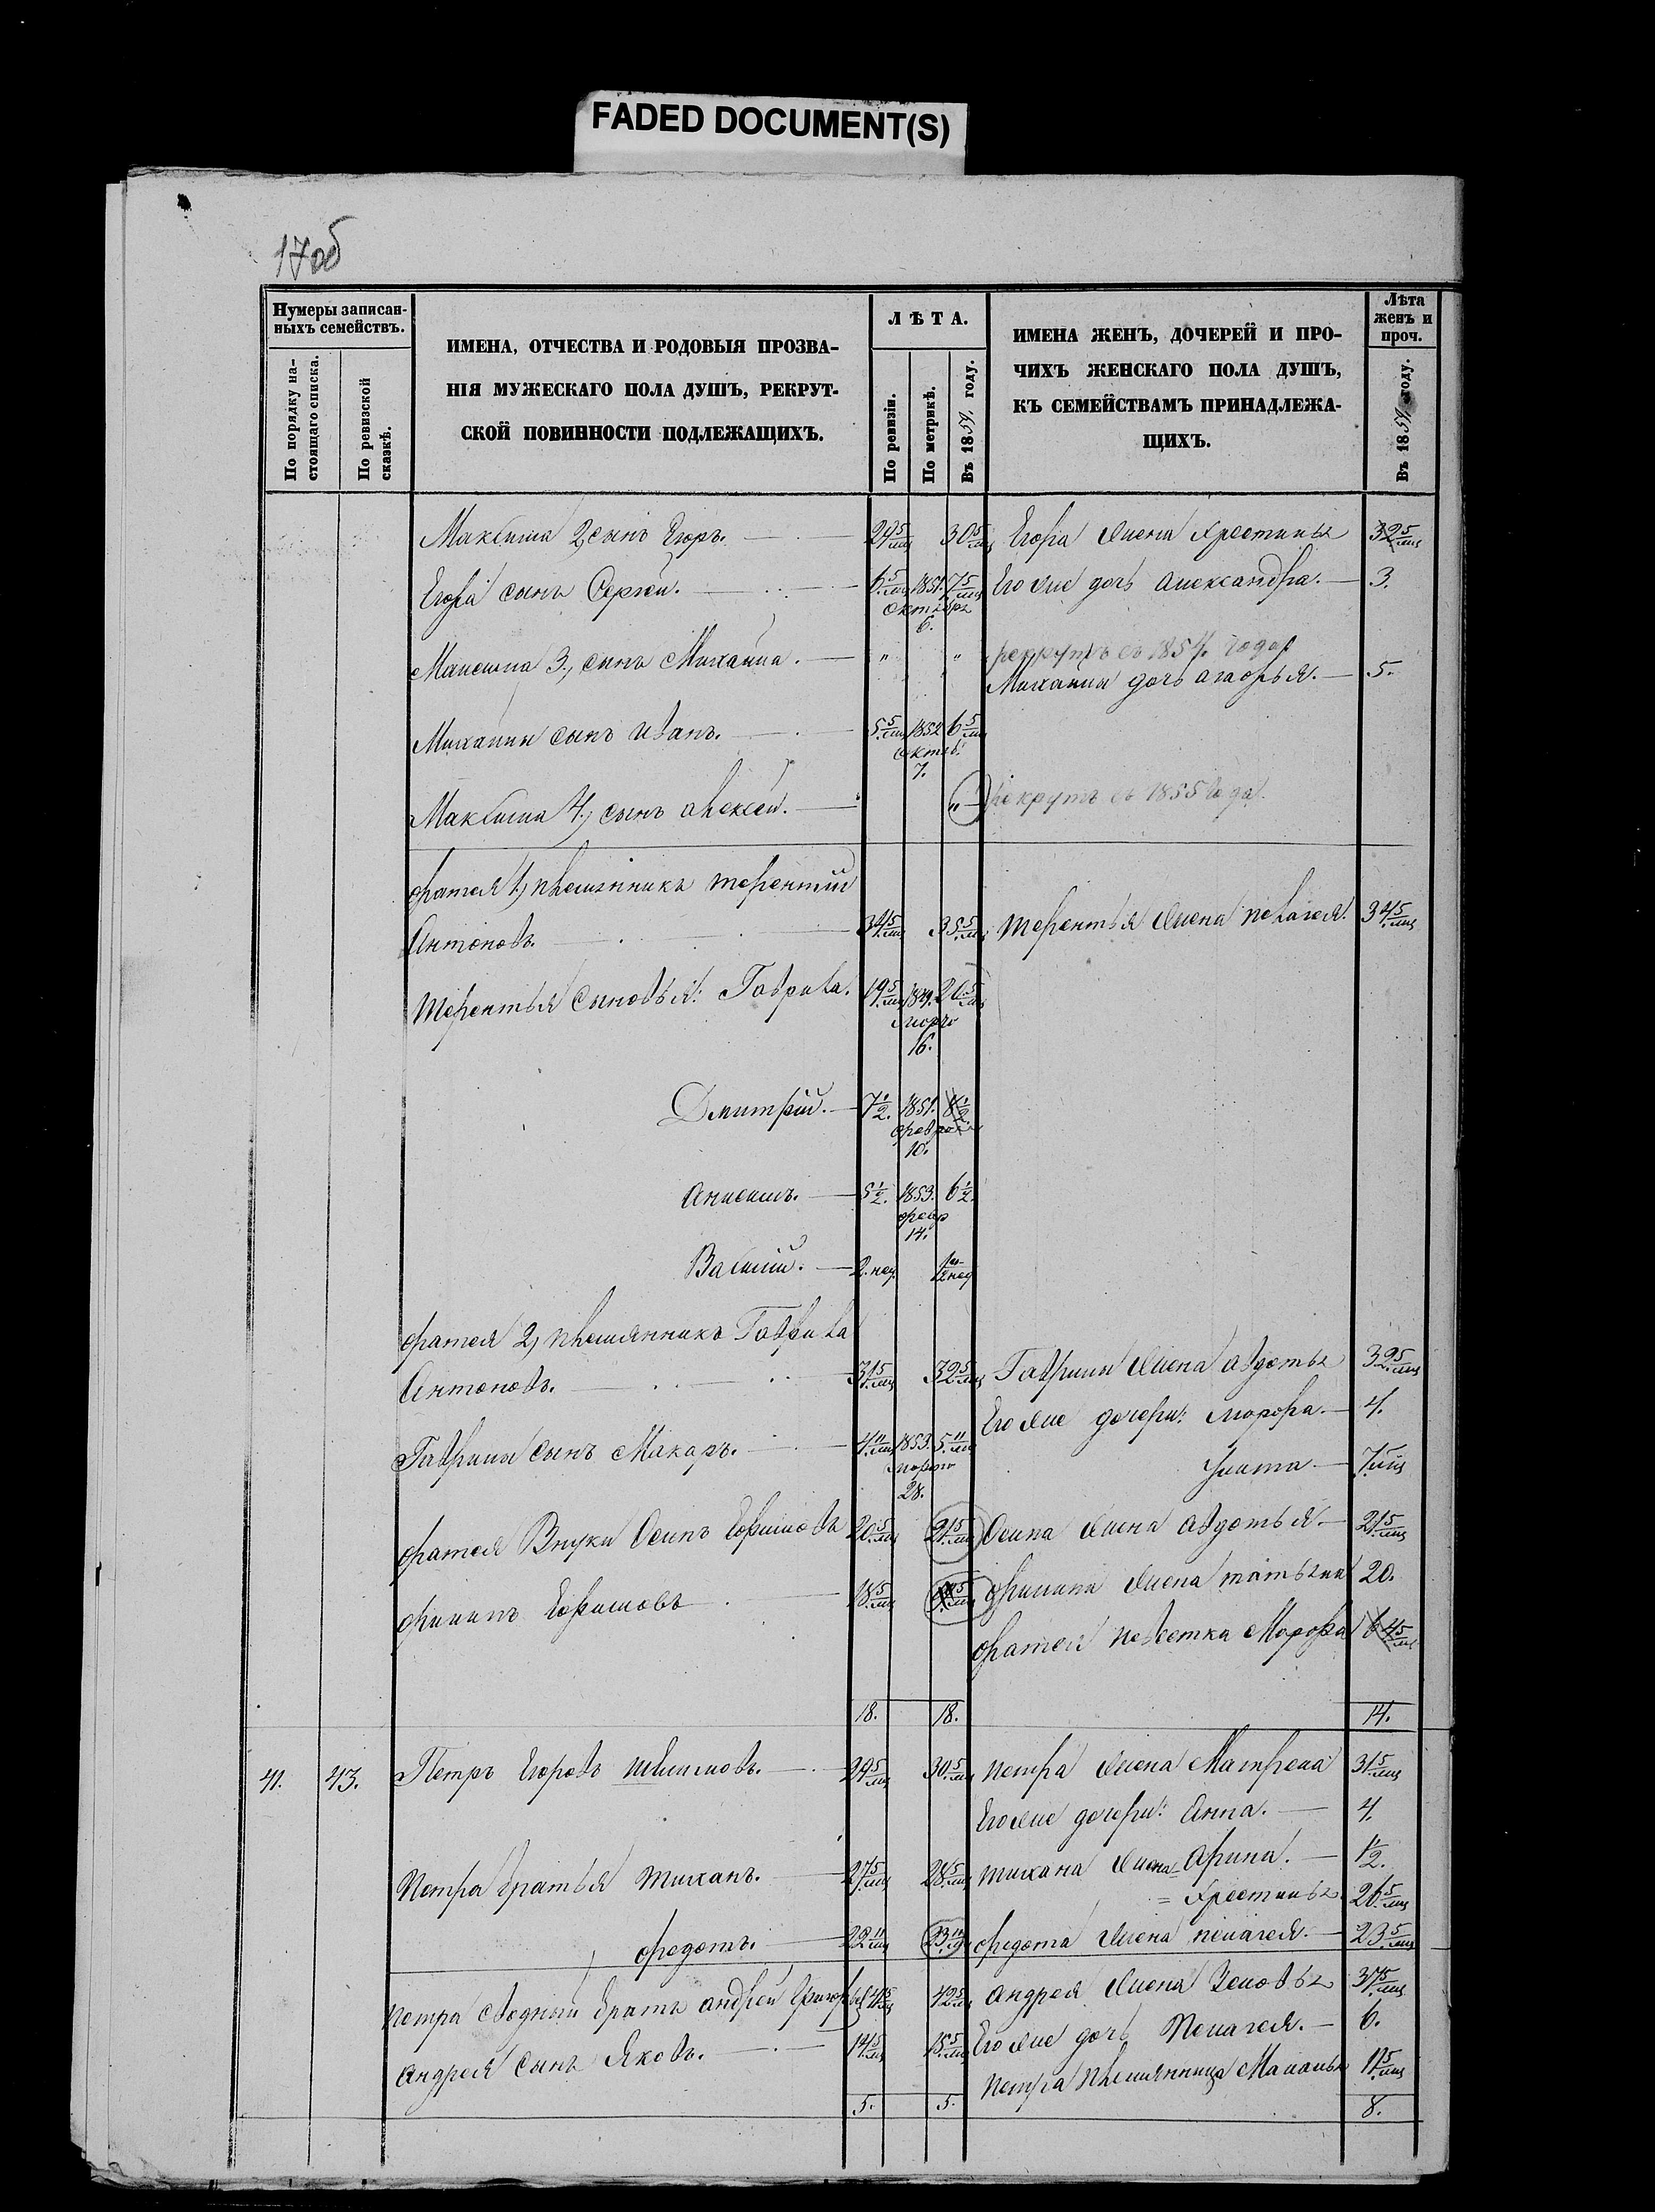 FADED DOCUMENT(S)
17об
Нумеры записан-
ныхъ семействъ.
По порядку на-
стоящаго списка.
По ревизской
сказкѣ.
ИМЕНА, ОТЧЕСТВА И РОДОВЫЯ ПРОЗВА-
НІЯ МУЖЕСКАГО ПОЛА ДУШЪ, РЕКРУТ-
СКОЙ ПОВИННОСТИ ПОДЛЕЖАЩИХЪ.
ЛѢТА.
По ревизіи.
По метрикѣ.
Въ 1859 году.
ИМЕНА ЖЕНЪ, ДОЧЕРЕЙ И ПРО-
ЧИХЪ ЖЕНСКАГО ПОЛА ДУШЪ,
КЪ СЕМЕЙСТВАМЪ ПРИНАДЛЕЖА-
ЩИХЪ.
Лѣта
женъ и
проч.
Въ 1859 году.
Максима 2, сынъ Егоръ. 29 5/мц 30 5/мц Егора жена Хрестинья 32 5/мц
Егора сынъ Сергей. 6 5/мц 1851. 7 5/мц Его же дочь Александра. 3.
октября
6.
Максима 3, сынъ Михаила. " " рекрутъ съ 1854 года
Михайлы дочь Агафья. 5.
Михайлы сынъ Иванъ. 5 5/мц 1852 6 5/мц
октяб.
7.
Максима 4, сынъ Алексей. " рекрутъ съ 1855 года
Фатея 1, племянникъ Терентий
Антоновъ. 34 5/мц 35 5/мц Терентья жена Пелагея. 34 5/мц
Терентья сыновья: Гаврила. 19 5/мц 20 5/мц
марта
16.
Дмитрий. 7 1/2. 1851. 8 1/2
февра
10.
Анисимъ. 5 1/2. 1853. 6 1/2.
февр
14.
Василий. 2. нед.
Фатея 2, племянникъ Гаврила
Антоновъ. 31 5/мц 32 5/мц Гаврилы жена Авдотья 32 5/мц
Его же дочери: Марфа. 4.
Гаврилы сынъ Макаръ. 4 11/мц 1853. 5 11/мц
Улита 7 мц
марта
28.
Фатея внуки Осипъ Ефимовъ 20 5/мц 21 5/мц Осипа жена Авдотья 21 5/мц
Филипъ Ефимовъ 18 5/мц Филипа жена Татьяна 20.
Фатея невестка Марфа 64 5/мц
18. 18. 14.
41. 43. Петръ Егоровъ Климовъ. 29 5/мц 30 5/мц Петра жена Матрена 31 5/мц
Его же дочери: Анна. 4.
Арина. 1/2.
Петра братья Тиханъ. 27 5/мц 28 5/мц Тихана жена Хрестинья 26 5/мц
Федотъ. 22 11/мц Федота жена Пелагея. 23 5/мц
Петра сводный братъ Андрей Григорьев 41 5/мц 42 5/мц Андрея жена 37 5/мц
Его же дочь Пелагея. 6.
Андрея сынъ Яковъ. 14 5/мц 15 5/мц
Петра племянница Маланья 11 5/мц
5. 5. 8.